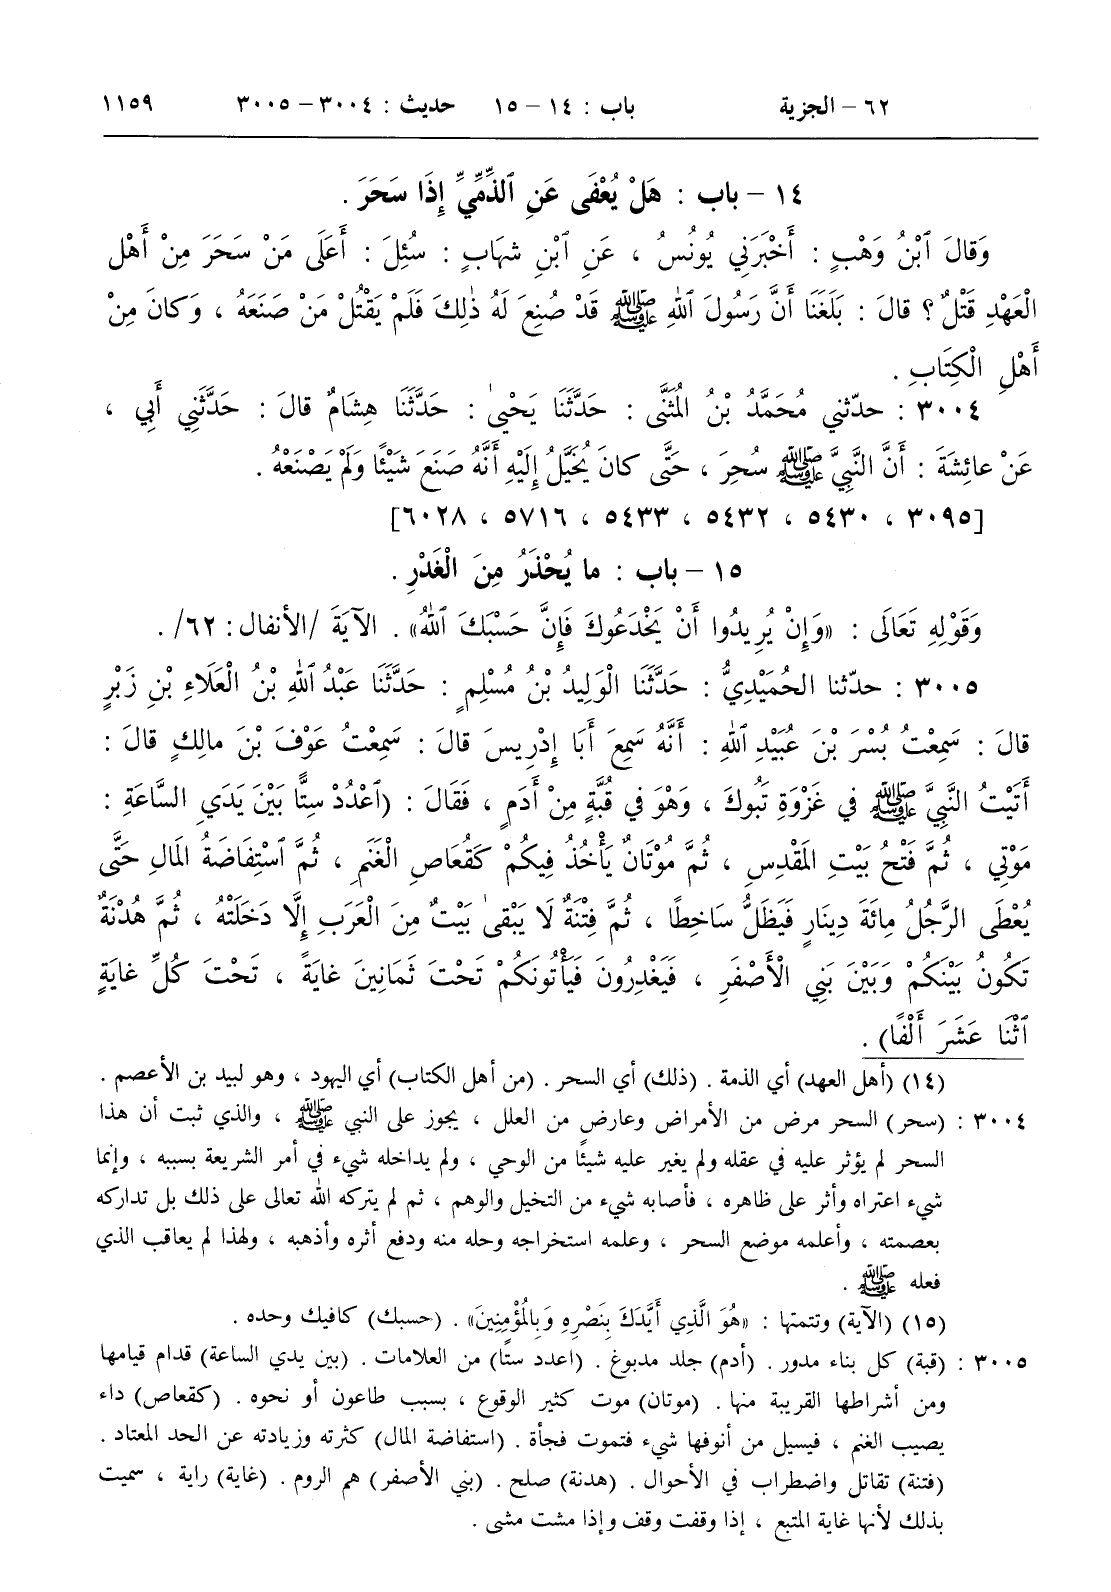 ٦٢ – الجزية باب : ١٤ – ١٥ حديث : ٣٠٠٤ – ٣٠٠٥ ١١٥٩
١٤ – باب : هَلْ يُعْفَى عَنِ ٱلذِّمِّيِّ إِذَا سَحَرَ .
وَقالَ ٱبْنُ وَهْبٍ : أَخْبَرَنِي يُونُسُ ، عَنِ ٱبْنِ شِهَابٍ : سُئِلَ : أَعَلَى مَنْ سَحَرَ مِنْ أَهْلِ
الْعَهْدِ قَتْلٌ ؟ قالَ : بَلَغَنَا أَنَّ رَسُولَ ٱللهِ ﷺ قَدْ صُنِعَ لَهُ ذٰلِكَ فَلَمْ يَقْتُلْ مَنْ صَنَعَهُ ، وَكانَ مِنْ
أَهْلِ الْكِتَابِ .
٣٠٠٤ : حدّثني مُحَمَّدُ بْنُ المُثَنَّى : حَدَّثَنَا يَحْيىٰ : حَدَّثَنَا هِشَامٌ قالَ : حَدَّثَنِي أَبِي ،
عَنْ عائِشَةَ : أَنَّ النَّبِيَّ ﷺ سُحِرَ ، حَتَّى كانَ يُخَيَّلُ إِلَيْهِ أَنَّهُ صَنَعَ شَيْئًا وَلَمْ يَصْنَعْهُ .
[٣٠٩٥ ، ٥٤٣٠ ، ٥٤٣٢ ، ٥٤٣٣ ، ٥٧١٦ ، ٦٠٢٨]
١٥ – باب : ما يُحْذَرُ مِنَ الْغَدْرِ .
وَقَوْلِهِ تَعَالَى : «وَإِنْ يُرِيدُوا أَنْ يَخْدَعُوكَ فَإِنَّ حَسْبَكَ ٱللهُ» . الآيَةَ /الأنفال: ٦٢/ .
٣٠٠٥ : حدّثنا الحُمَيْدِيُّ : حَدَّثَنَا الْوَلِيدُ بْنُ مُسْلِمٍ : حَدَّثَنَا عَبْدُ ٱللهِ بْنُ الْعَلَاءِ بْنِ زَبْرٍ
قالَ : سَمِعْتُ بُسْرَ بْنَ عُبَيْدِ ٱللهِ : أَنَّهُ سَمِعَ أَبَا إِدْرِيسَ قالَ : سَمِعْتُ عَوْفَ بْنَ مالِكٍ قالَ :
أَتَيْتُ النَّبِيَّ ﷺ في غَزْوَةِ تَبُوكَ ، وَهْوَ في قُبَّةٍ مِنْ أَدَمٍ ، فَقَالَ : (ٱعْدُدْ سِتًّا بَيْنَ يَدَيِ السَّاعَةِ :
مَوْتِي ، ثُمَّ فَتْحُ بَيْتِ المَقْدِسِ ، ثُمَّ مُوْتَانٌ يَأْخُذُ فِيكُمْ كَقُعَاصِ الْغَنَمِ ، ثُمَّ ٱسْتِفَاضَةُ المَالِ حَتَّى
يُعْطَى الرَّجُلُ مِائَةَ دِينَارٍ فَيَظَلُّ سَاخِطًا ، ثُمَّ فِتْنَةٌ لَا يَبْقىٰ بَيْتٌ مِنَ الْعَرَبِ إِلَّا دَخَلَتْهُ ، ثُمَّ هُدْنَةٌ
تَكُونُ بَيْنَكُمْ وَبَيْنَ بَنِي الْأَصْفَرِ ، فَيَغْدِرُونَ فَيَأْتُونَكُمْ تَحْتَ ثَمَانِينَ غايَةً ، تَحْتَ كُلِّ غايَةٍ
ٱثْنَا عَشَرَ أَلْفًا) .
(١٤) (أهل العهد) أي الذمة . (ذلك) أي السحر . (من أهل الكتاب) أي اليهود ، وهو لبيد بن الأعصم .
٣٠٠٤ : (سحر) السحر مرض من الأمراض وعارض من العلل ، يجوز على النبي ﷺ ، والذي ثبت أن هذا
السحر لم يؤثر عليه في عقله ولم يغير عليه شيئًا من الوحي ، ولم يداخله شيء في أمر الشريعة بسببه ، وإنما
شيء اعتراه وأثر على ظاهره ، فأصابه شيء من التخيل والوهم ، ثم لم يتركه الله تعالى على ذلك بل تداركه
بعصمته ، وأعلمه موضع السحر ، وعلمه استخراجه وحله منه ودفع أثره وأذهبه ، ولهذا لم يعاقب الذي
فعله ﷺ .
(١٥) (الآية) وتتمتها : «هُوَ الَّذِي أَيَّدَكَ بِنَصْرِهِ وَبِالْمُؤْمِنِينَ» . (حسبك) كافيك وحده .
٣٠٠٥ : (قبة) كل بناء مدور . (أدم) جلد مدبوغ . (اعدد ستًا) من العلامات . (بين يدي الساعة) قدام قيامها
ومن أشراطها القريبة منها . (موتان) موت كثير الوقوع ، بسبب طاعون أو نحوه . (كقعاص) داء
يصيب الغنم ، فيسيل من أنوفها شيء فتموت فجأة . (استفاضة المال) كثرته وزيادته عن الحد المعتاد .
(فتنة) تقاتل واضطراب في الأحوال . (هدنة) صلح . (بني الأصفر) هم الروم . (غاية) راية ، سميت
بذلك لأنها غاية المتبع ، إذا وقفت وقف وإذا مشت مشى .